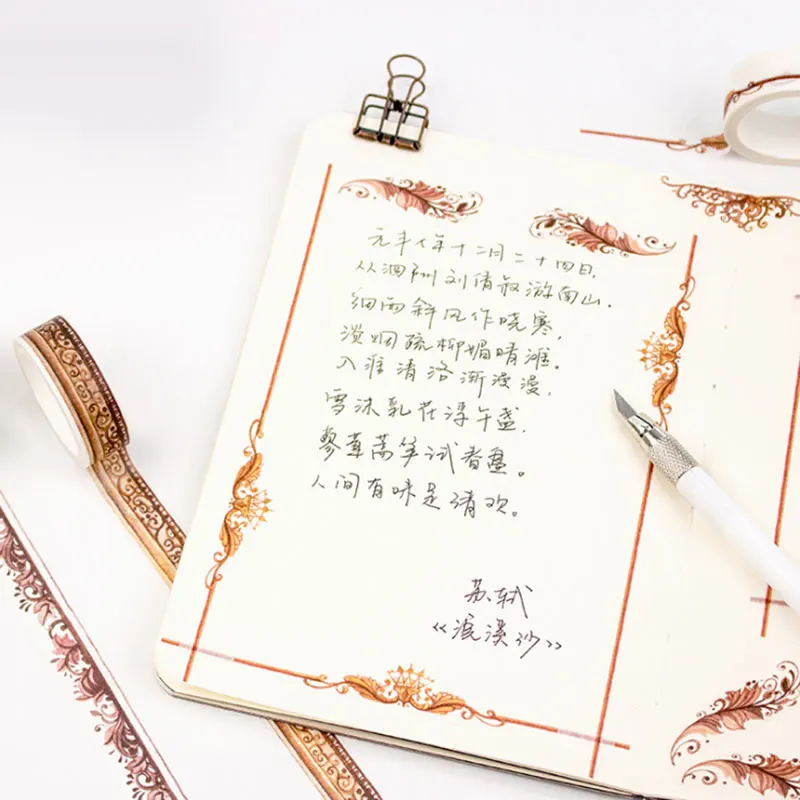 元丰七年十二月二十四日，
从泗州刘倩叔游南山．
细雨斜风作晓寒，
淡烟疏柳媚晴滩。
入淮清洛渐漫漫，
雪沫乳花浮午盏，
蓼茸蒿笋试春盘。
人间有味是清欢。
苏轼
《浣溪沙》